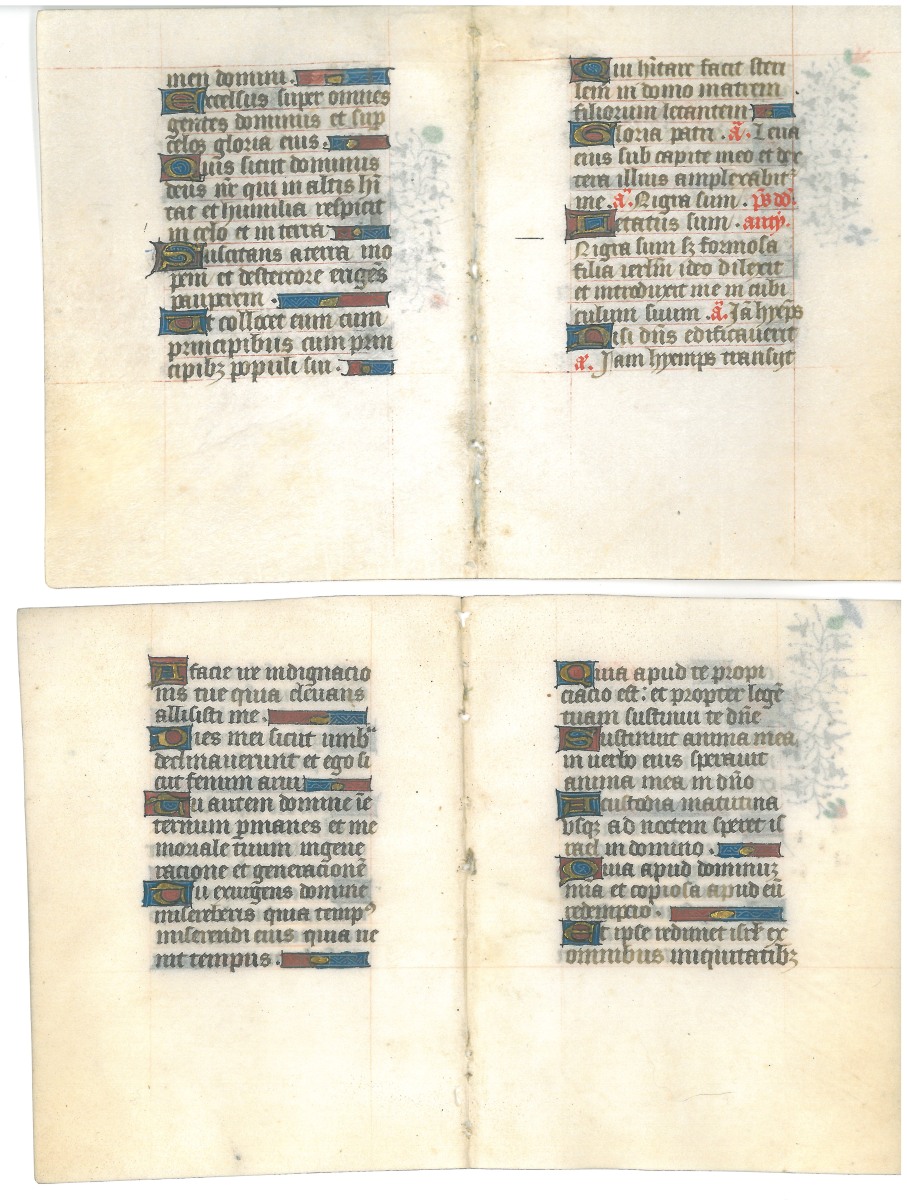 men domini .
Excelsus super omnes
gentes dominus et sup
celos gloria eius .
Quis sicut dominus
deus nr̄ qui in altis hī
tat et humilia respicit
in celo et in terra
Suscitans a terra ino
pem et de stercore erigēs
pauperem .
Ut collocet eum cum
principibus cum prin
cipibꝫ populi sui .
Qui hītare facit steri
lem in domo matrem
filiorum letantem
Gloria patri . ā. Leua
eius sub capite meo et dex
tera illius amplexabitᷣ
me . ā. Nigra sum . p̄s dd̄.
Letatus sum . anty.
Nigra sum sꝫ formosa
filia ierlm̄ ideo dilexit
et introduxit me in cubi
culum suum . ā. Jā hyēps
Nisi dn̄s edificauerit
ā. Jam hyemps transiyt
A facie ire indignacio
nis tue quia eleuans
allisisti me .
Dies mei sicut umbra
declinauerunt et ego si
cut fenum arui
Tu autem domine ī e
ternum ꝑmanes et me
moriale tuum in gene
racione et generacionē
Tu exurgens domine
misereberis quia tempꝰ
miserendi eius quia ue
nit tempus .
Quia apud te propi
ciacio est : et propter legē
tuam sustinui te dn̄e
Sustinuit anima mea
in uerbo eius sperauit
anima mea in dn̄o
A custodia matutina
vsqꝫ ad noctem speret is
rael in domino .
Quia apud dominuꝫ
mia et copiosa apud eū
redempcio .
Et ipse redimet isrl̄ ex
omnibus iniquitatibꝫ